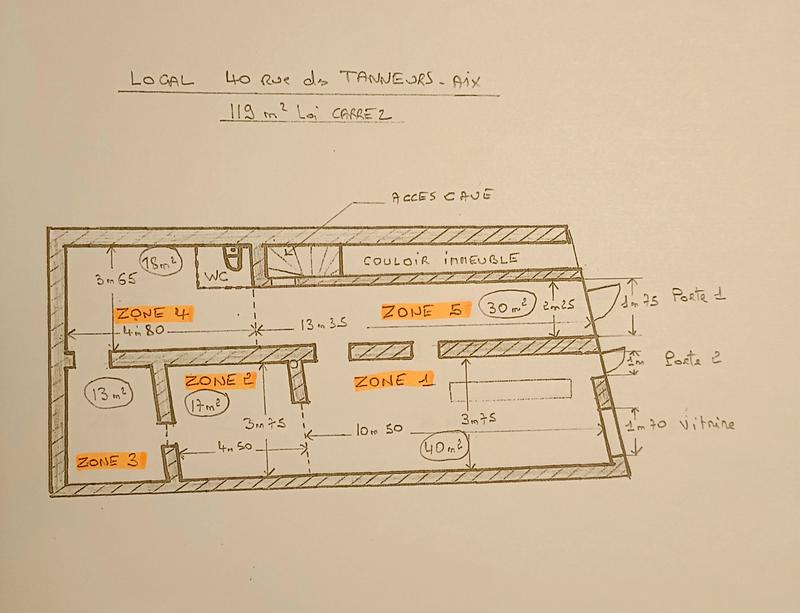 LOCAL 40 Rue des TANNEURS - AIX
119 m² Loi CARREZ
ACCES CAVE
18m²
WC
COULOIR IMMEUBLE
3m65
ZONE 4
4m80
13m35
ZONE 5
30m²
2m25
1m75 Porte 1
13m²
ZONE 2
17m²
ZONE 1
1m Porte 2
3m75
3m75
10m50
1m70 Vitrine
ZONE 3
4m50
40m²